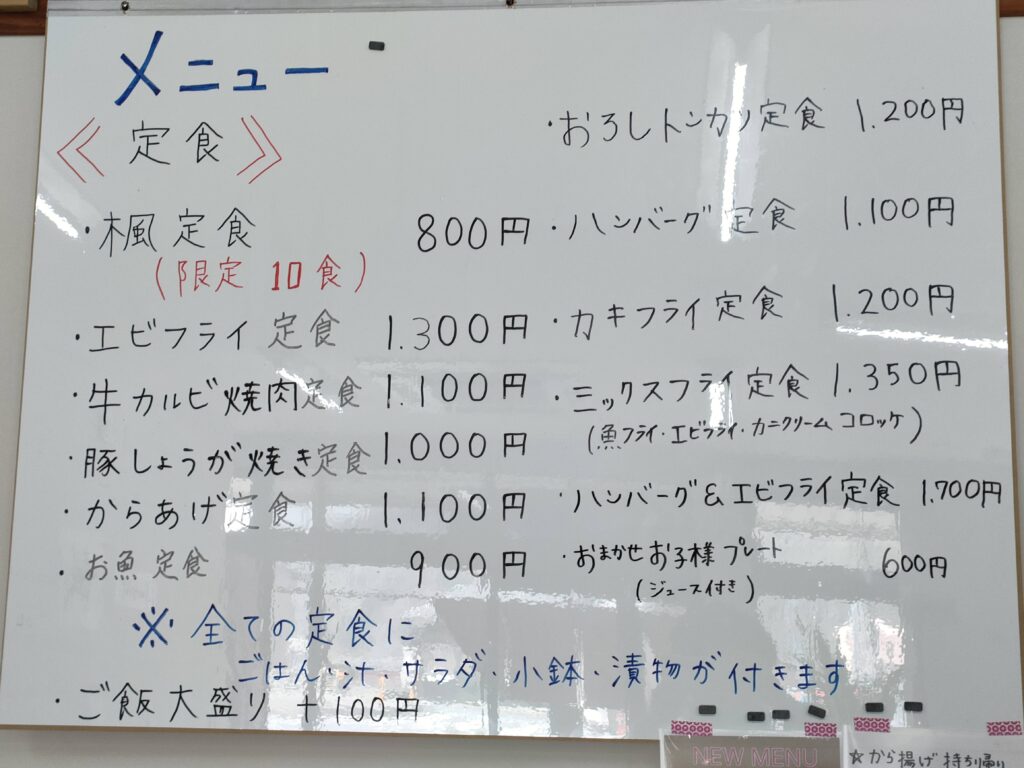 メニュー
《定食》
・楓定食 800円
(限定 10食)
・エビフライ定食 1.300円
・牛カルビ焼肉定食 1.100円
・豚しょうが焼き定食 1.000円
・からあげ定食 1.100円
・お魚定食 900円
・おろしトンカツ定食 1.200円
・ハンバーグ定食 1.100円
・カキフライ定食 1.200円
・ミックスフライ定食 1.350円
(魚フライ・エビフライ・カニクリームコロッケ)
・ハンバーグ&エビフライ定食 1.700円
・おまかせお子様プレート 600円
(ジュース付き)
※全ての定食に
ごはん・汁・サラダ・小鉢・漬物が付きます
・ご飯大盛り +100円
NEW MENU
☆から揚げ持ち帰り